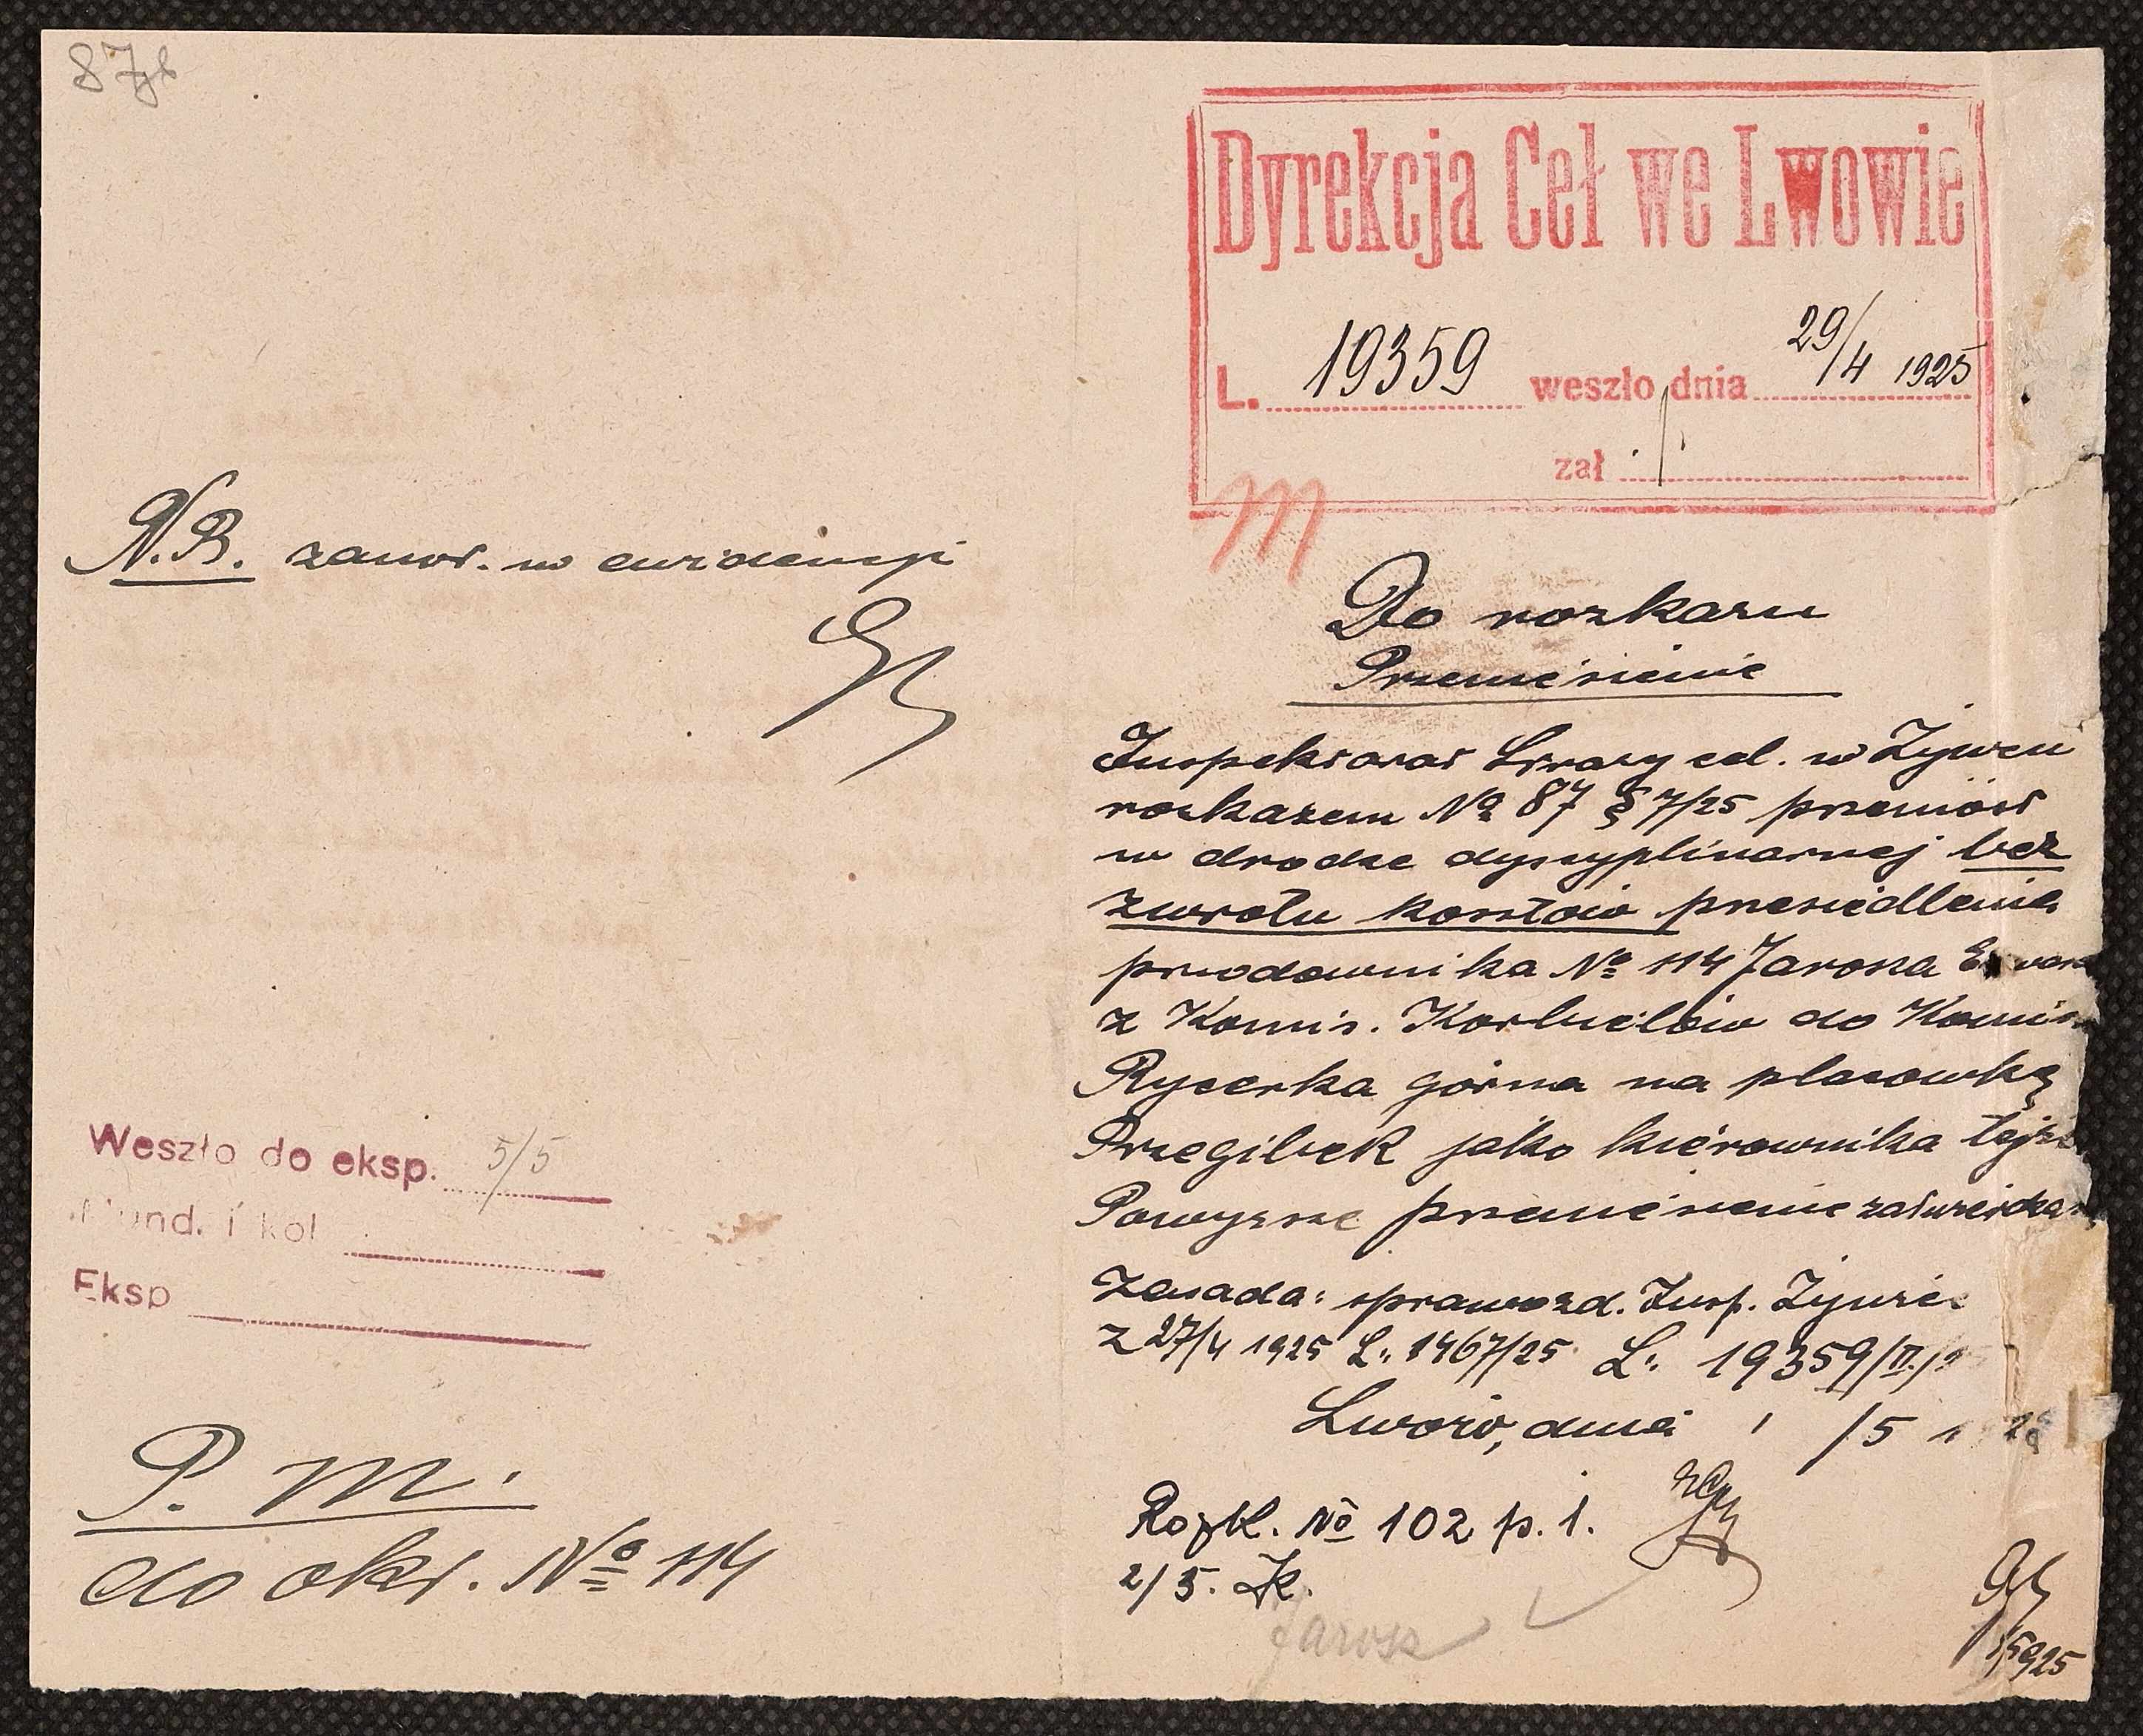 87b
N.B. zanot. w ewidencji
Weszło do eksp. 5/5
Mund. i kol
Eksp
P. M.
do okr. No 114
Dyrekcja Ceł we Lwowie
L. 19359 weszło dnia 29/4 1925
zał ./.
M
Do rozkazu
Przeniesienie
Inspektorat Straży cel. w Żywcu
rozkazem No 87 § 7/25 przeniósł
w drodze dyscyplinarnej bez
zwrotu kosztów przesiedlenia
przodownika No 114 Jarosza
z Komis. Korbielów do Komis.
Rycerka górna na placówkę
Przegibek jako kierownika tejże
Powyższe przeniesienie zatwierdza
Zasada: sprawozd. Insp. Żywiec
z 27/4 1925 L: 1467/25 L: 19359/II/
Lwów, dnia /5 1925
Rozk. No 102 p. 1.
2/5. K.
Jarosz
1/5 925